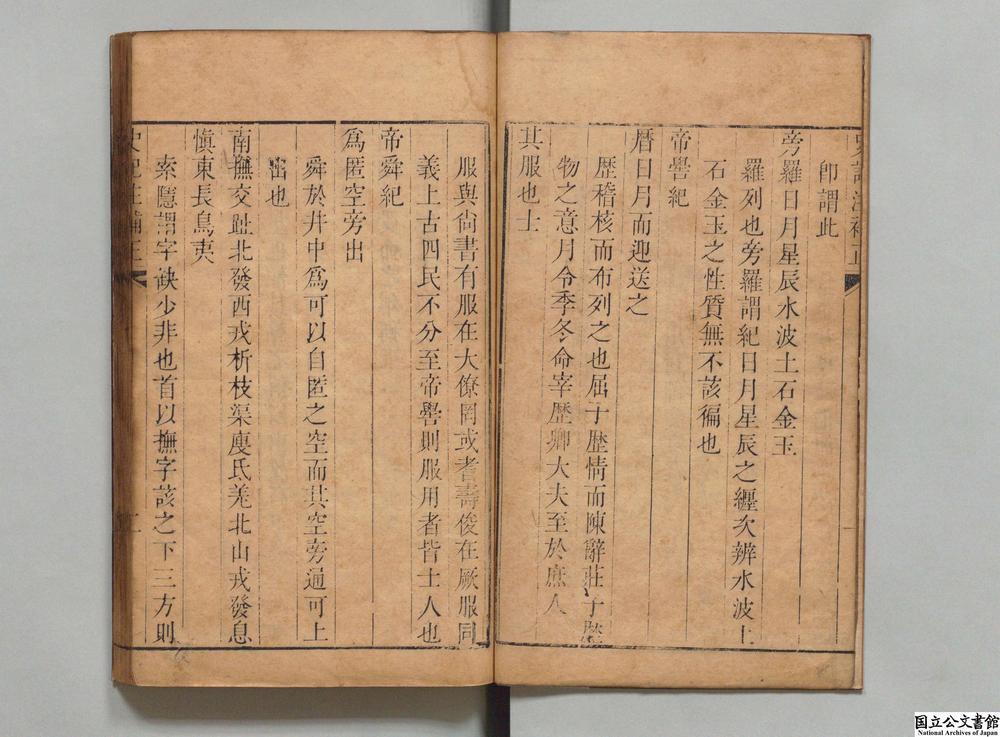 史記注補正
卽謂此
旁羅日月星辰水波土石金玉
羅列也旁羅謂紀日月星辰之纏次辨水波土
石金玉之性質無不該徧也
帝嚳紀
曆日月而迎送之
歷稽核而布列之也屈子歷情而陳辭莊子歷
物之意月令季冬命宰歷卿大夫至於庶人
其服也士
服與尙書有服在大僚罔或耆壽俊在厥服同
義上古四民不分至帝嚳則服用者皆士人也
帝舜紀
爲匿空旁出
舜於井中爲可以自匿之空而其空旁通可上
出也
南撫交趾北發西戎析枝渠廋氐羌北山戎發息
愼東長鳥夷
索隱謂字缺少非也首以撫字該之下三方則
史記注補正
二
国立公文書館
National Archives of Japan